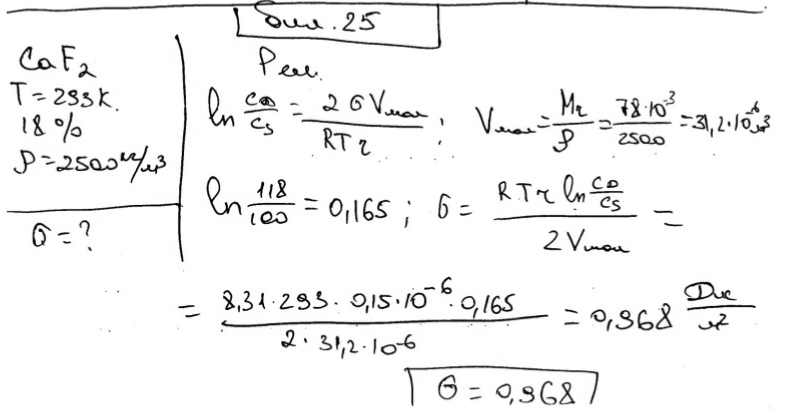 Бил. 25
CaF₂
T = 293 K.
18 %
ρ = 2500 кг/м³
σ = ?
Реш.
ln c₀/cs = 2 σ Vмол / RTr ; Vмол = Mr/ρ = 78·10⁻³/2500 = 31,2·10⁻⁶ м³
ln 118/100 = 0,165 ; σ = RTr ln c₀/cs / 2Vмол =
= 8,31·293·0,15·10⁻⁶·0,165 / 2·31,2·10⁻⁶ = 0,968 Дж/м²
σ = 0,968